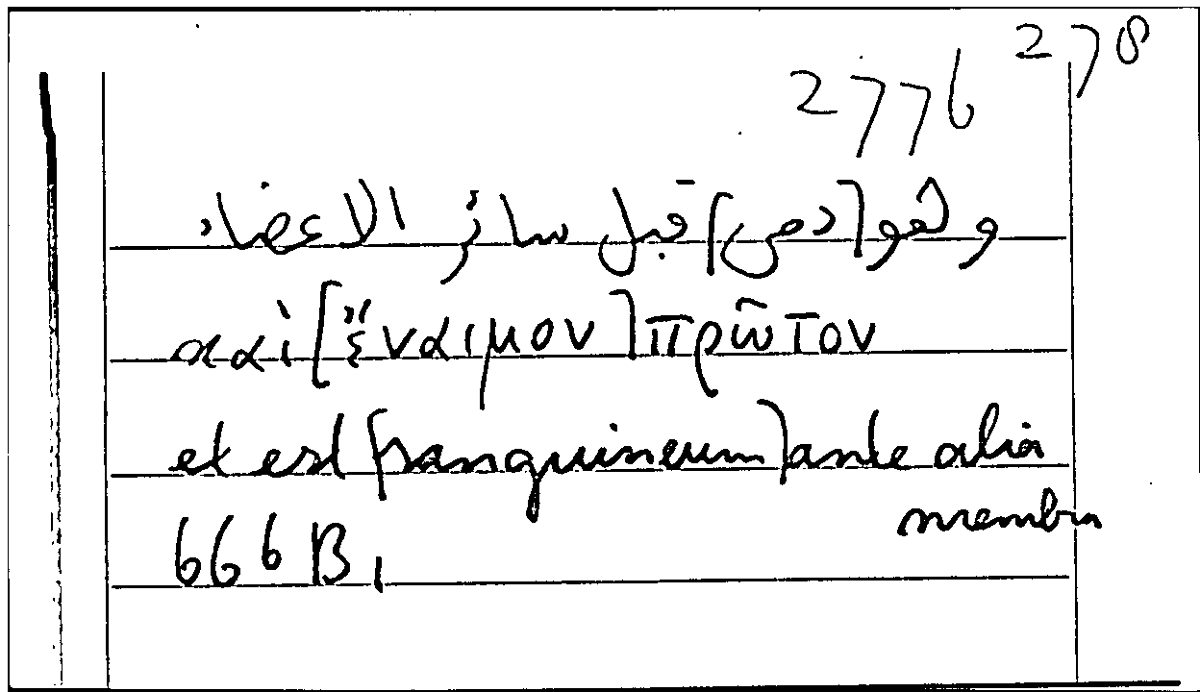 278
2776
وهو [دمى] قبل سائر الاعضاء
καὶ [ἔναιμον] πρῶτον
et est [sanguineum] ante alia
membra
666 B,